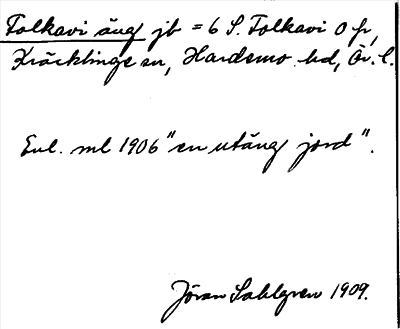 Folkavi äng jb = 6 S. Folkavi O fr,
Kräcklinge sn, Hardemo hd, Ör. l.
Enl. ml 1906 "en utäng jord".
Jöran Sahlgren 1909.